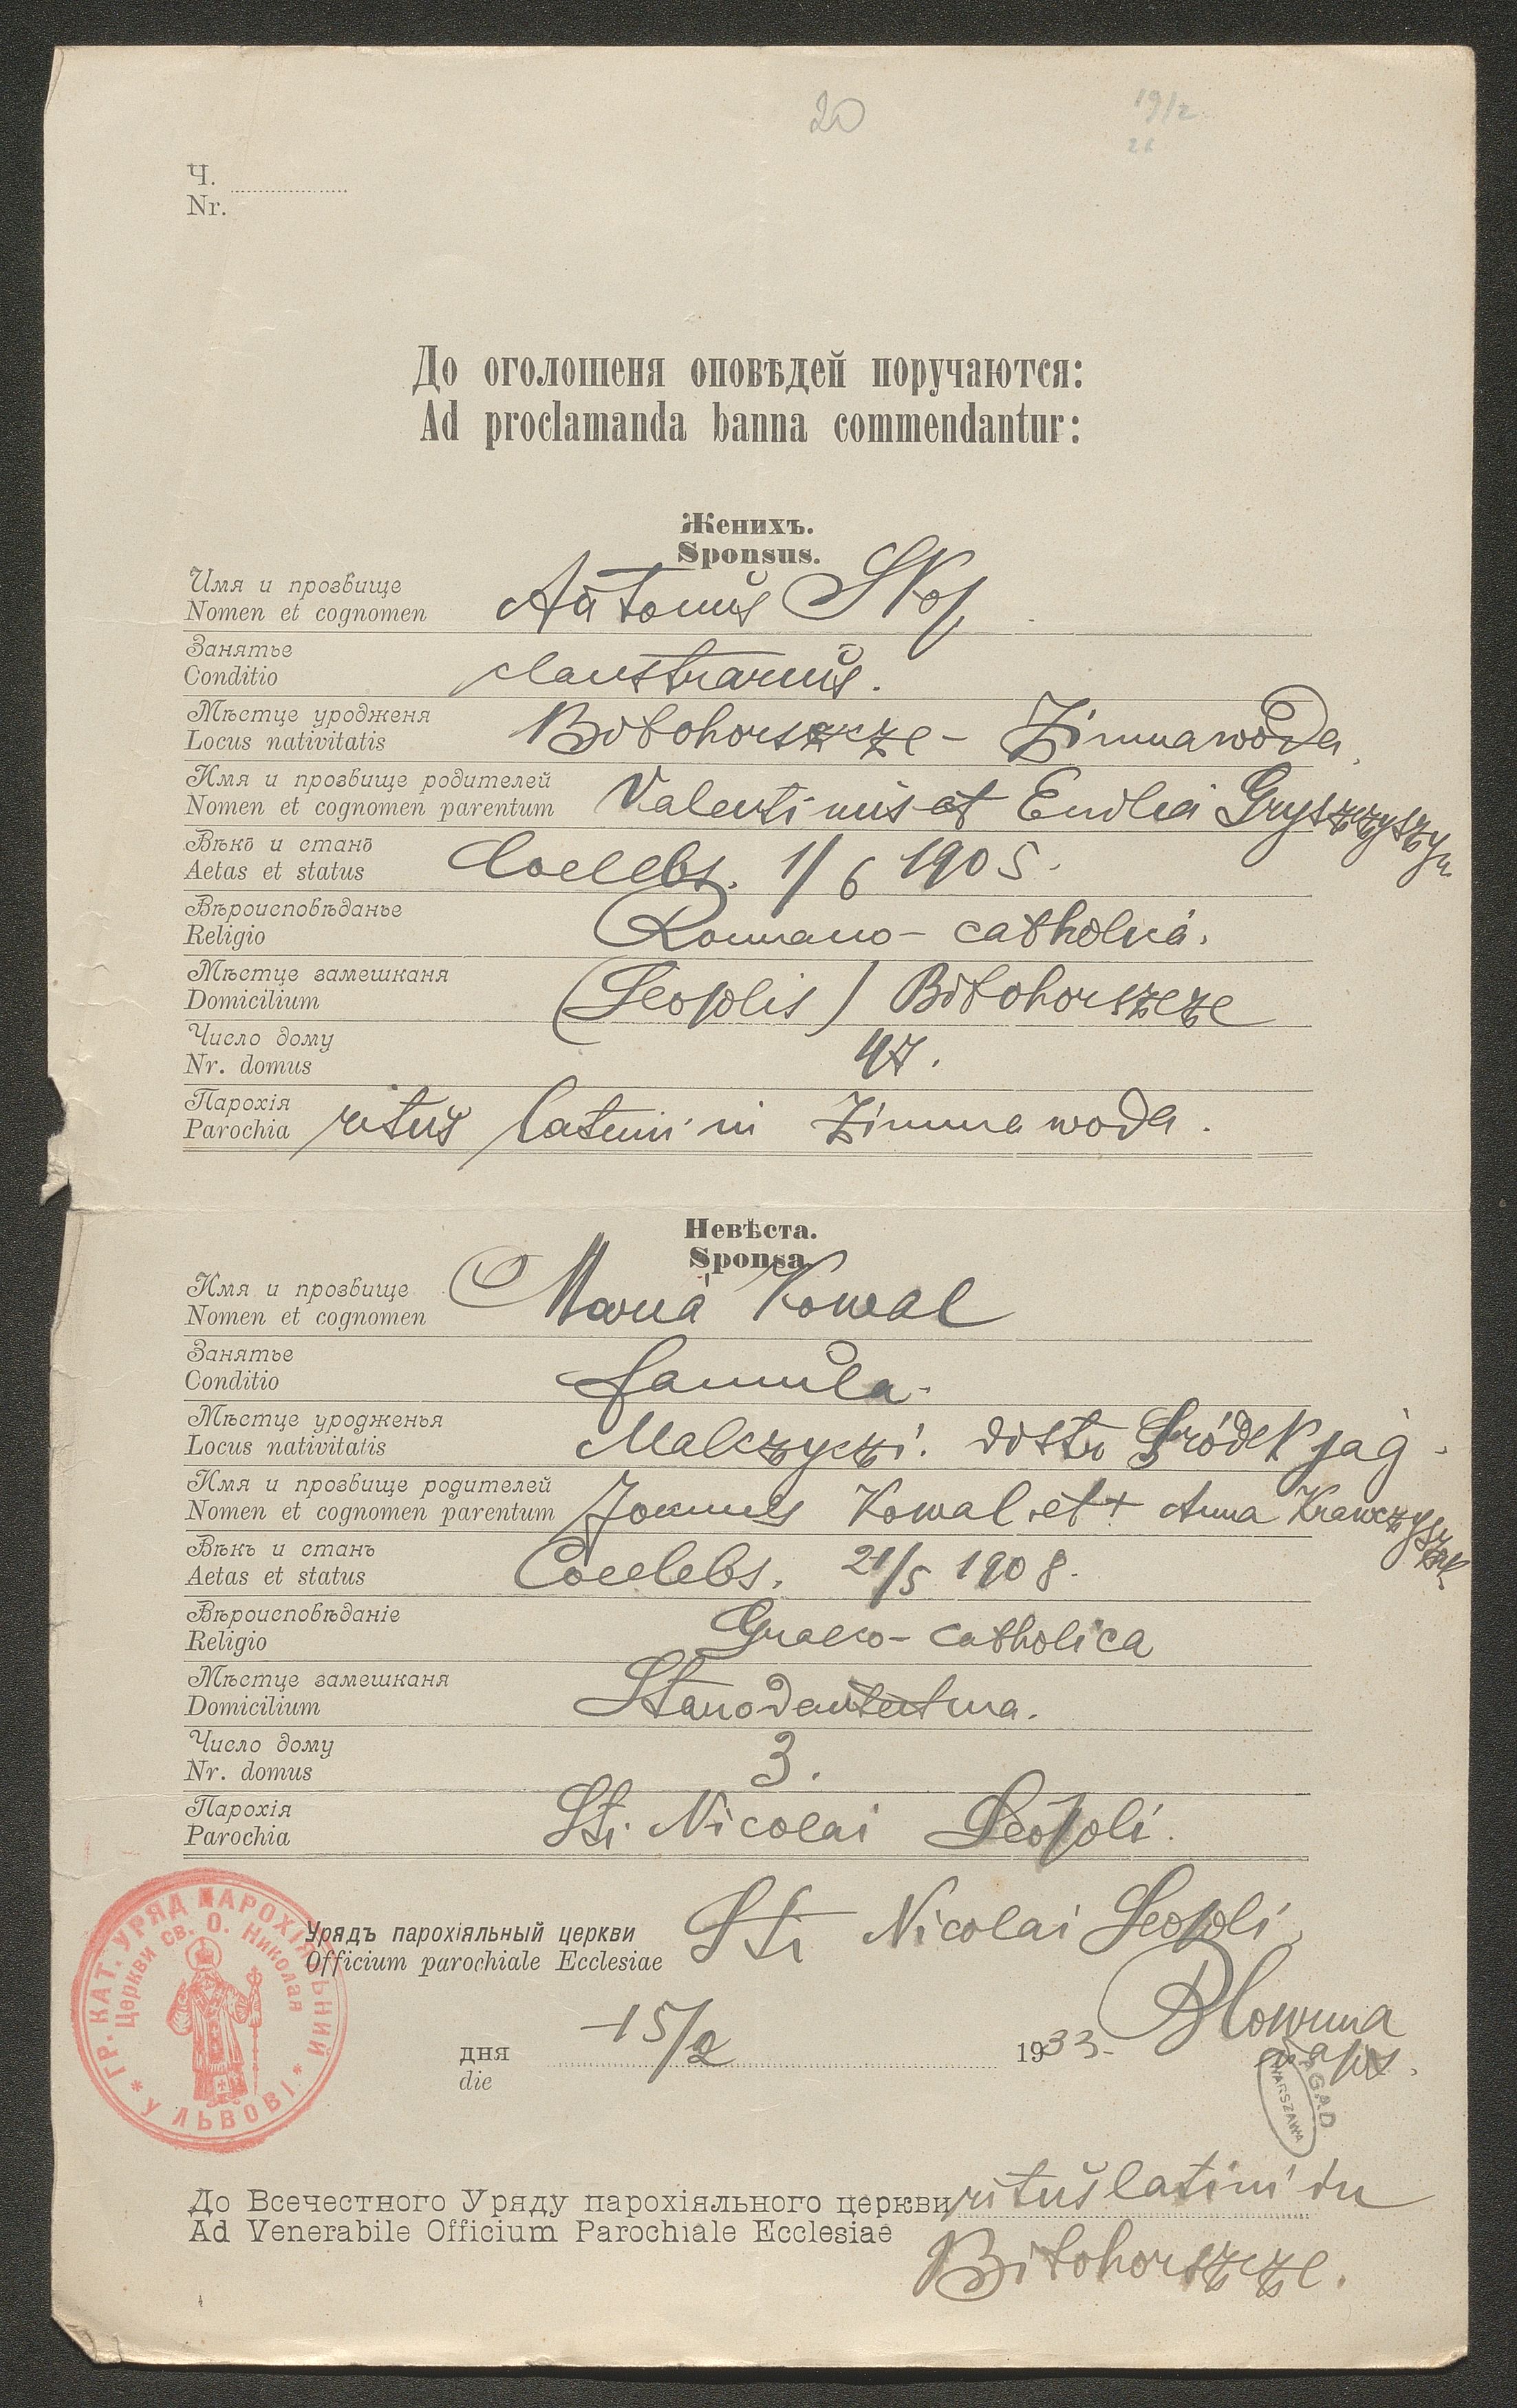 20
19/2
Ч.
Nr.
До оголошеня оповѣдей поручаются:
Ad proclamanda banna commendantur:
Женихъ.
Sponsus.
Имя и прозвище
Nomen et cognomen Antonius Skop
Занятье
Conditio claustrarius.
Мѣстце уродженя
Locus nativitatis Biłohorszcze - Zimnawoda.
Имя и прозвище родителей
Nomen et cognomen parentum Valentinus et Emilia Gryszczyszyn
Вѣкъ и станъ
Aetas et status Coelebs. 1/6 1905.
Вѣроисповѣданье
Religio Romano-catholica.
Мѣстце замешканя
Domicilium (Leopolis) Biłohorszcze
Число дому
Nr. domus 47.
Парохія
Parochia ritus latini in Zimna woda.
Невѣста.
Sponsa.
Имя и прозвище
Nomen et cognomen Maria Kowal
Занятье
Conditio famula.
Мѣстце уродженья
Locus nativitatis Malczyczi. distr Gródek jag.
Имя и прозвище родителей
Nomen et cognomen parentum Joannes Kowal et + Anna
Вѣкъ и станъ
Aetas et status Coelebs. 21/5 1908.
Вѣроисповѣданіе
Religio Graeco-catholica
Мѣстце замешканя
Domicilium
Число дому
Nr. domus 3.
Парохія
Parochia Sti. Nicolai Leopoli.
ГР. КАТ. УРЯД ПАРОХІЯЛЬНИЙ
Церкви св. О. Николая
* У ЛЬВОВІ *
Урядъ парохіяльный церкви
Officium parochiale Ecclesiae Sti Nicolai Leopoli
дня
die 15/2 1933.
AGAD
WARSZAWA
До Всечестного Уряду парохіяльного церкви
Ad Venerabile Officium Parochiale Ecclesiae ritus latini in
Biłohorszcze.